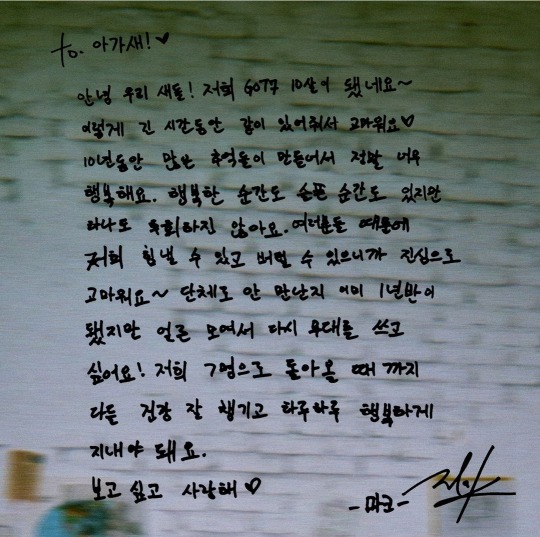 to. 아가새!♥
안녕 우리 새들! 저희 GOT7 10살이 됐네요~
이렇게 긴 시간동안 같이 있어줘서 고마워요♡
10년동안 많은 추억들이 만들어서 정말 너무
행복해요. 행복한 순간도 슬픈 순간도 있지만
하나도 후회하진 않아요. 여러분들 때문에
저희 힘낼 수 있고 버틸 수 있으니까 진심으로
고마워요~ 단체도 안 만난지 이미 1년반이
됐지만 얼른 모여서 다시 무대를 쓰고
싶어요! 저희 7명으로 돌아올 때 까지
다들 건강 잘 챙기고 하루하루 행복하게
지내야 돼요.
보고 싶고 사랑해♡
-마크-